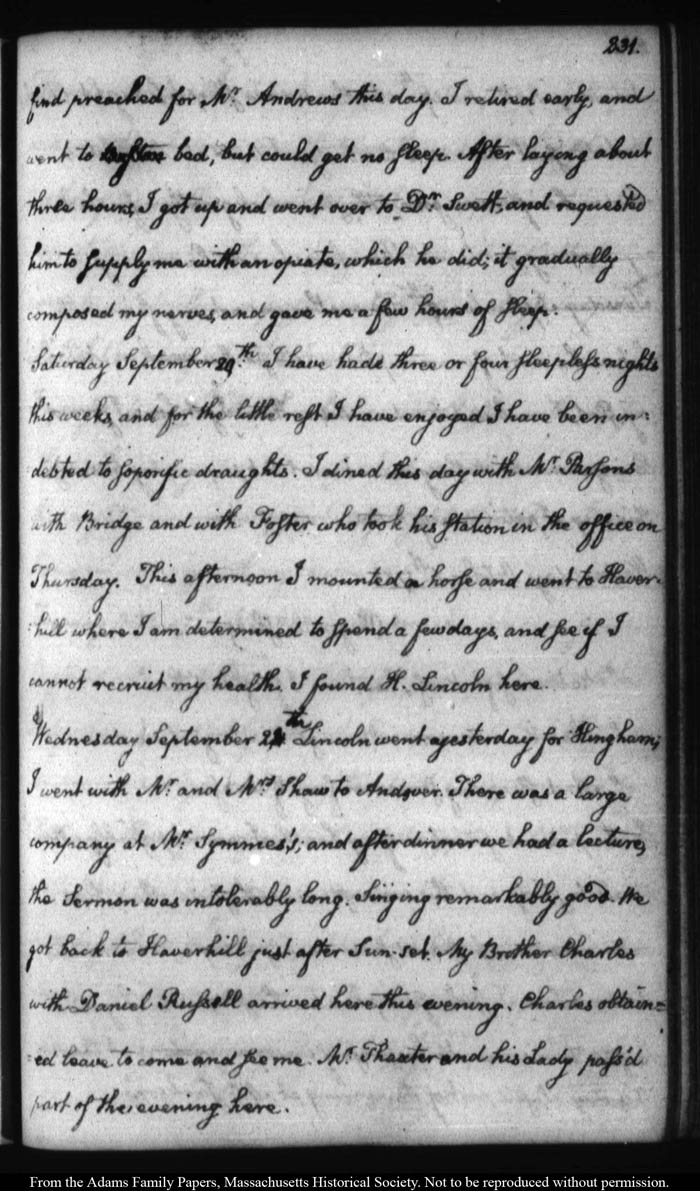 231.
find preached for Mr. Andrews this day. I retired early, and
went to bed, but could get no sleep. After laying about
three hours, I got up and went over to Dr. Swett, and requested
him to supply me with an opiate, which he did; it gradually
composed my nerves, and gave me a few hours of sleep.
Saturday September 20th. I have had three or four sleepless nights
this week, and for the little rest I have enjoyed I have been in=
debted to soporific draughts. I dined this day with Mr. Parsons
with Bridge and with Foster who took his station in the office on
Thursday. This afternoon I mounted a horse and went to Haver=
=hill where I am determined to spend a few days, and see if I
cannot recruit my health. I found H. Lincoln here.
Wednesday September 24th Lincoln went yesterday for Hingham;
I went with Mr. and Mrs. Shaw to Andover. There was a large
company at Mr. Symmes's; and after dinner we had a lecture,
the Sermon was intolerably long. Singing remarkably good. We
got back to Haverhill just after Sun-set. My Brother Charles
with Daniel Russell arrived here this evening. Charles obtain=
=ed leave to come and see me. Mr. Thaxter and his Lady pass'd
part of the evening here.
From the Adams Family Papers, Massachusetts Historical Society. Not to be reproduced without permission.